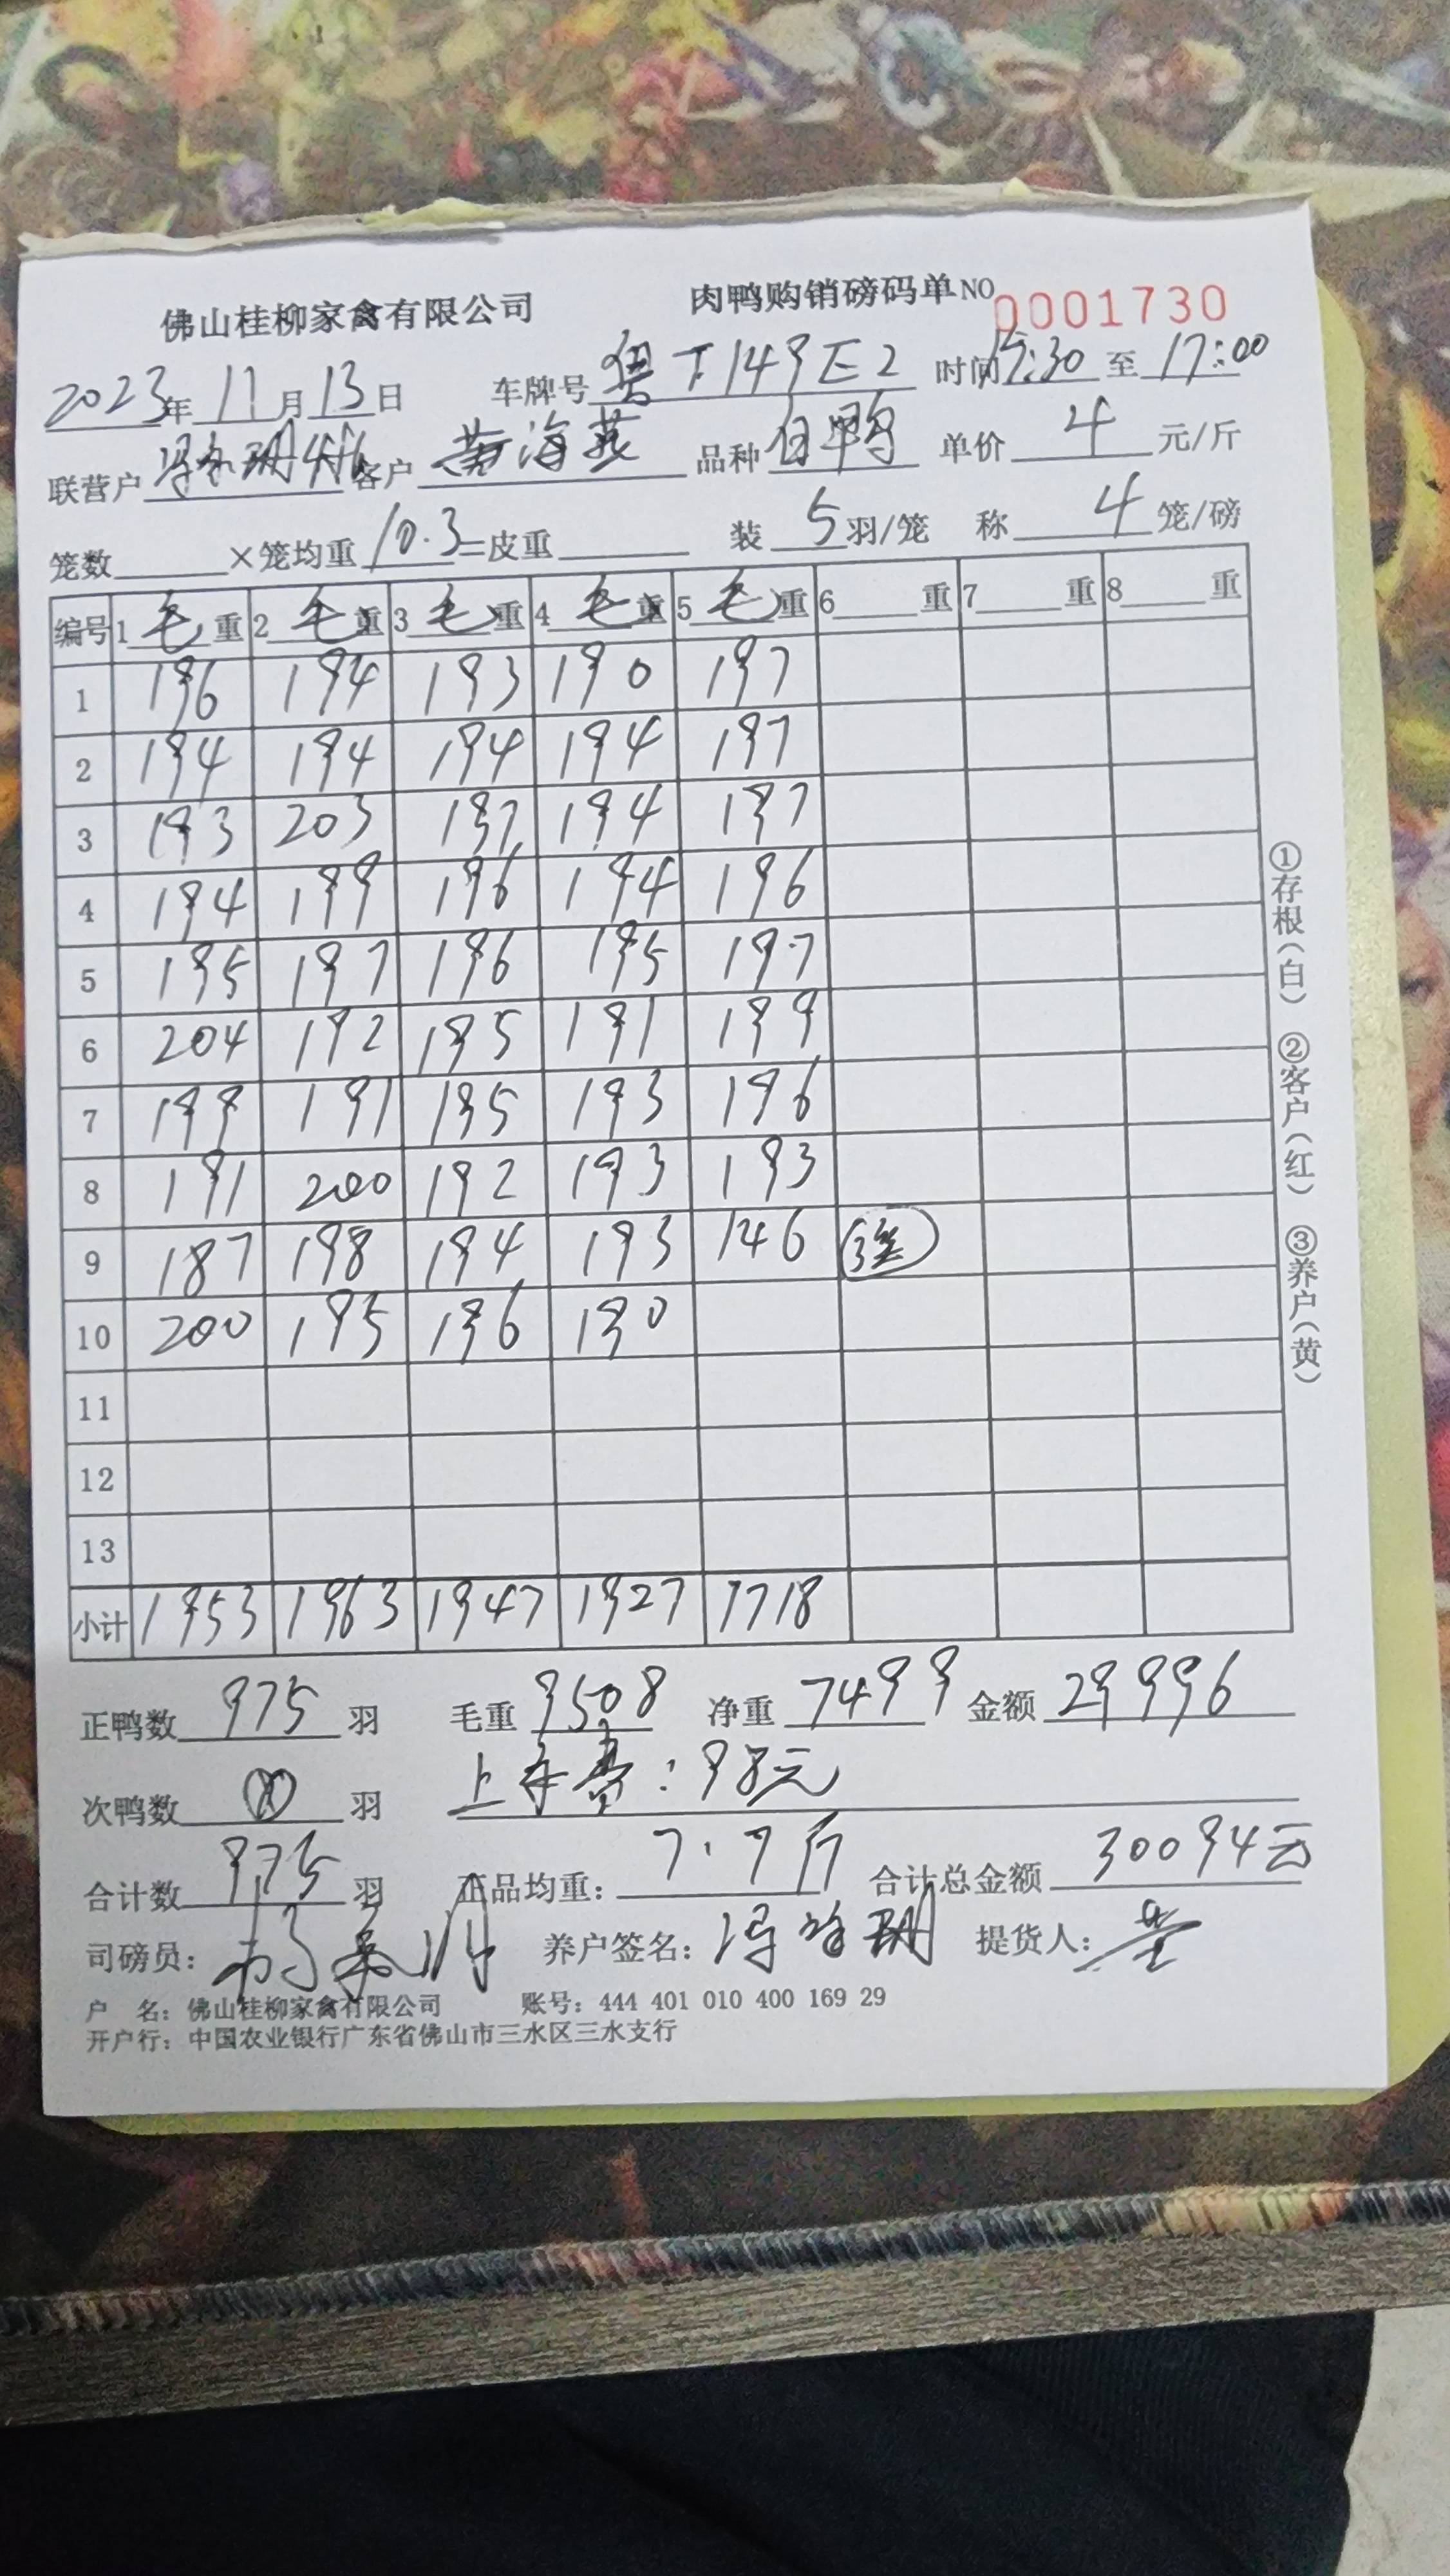 佛山桂柳家禽有限公司 肉鸭购销磅码单 NO 0001730
2023年 11月 13日 车牌号 粤T149E2 时间 15:30 至 17:00
联营户 客户 黄海燕 品种 白鸭 单价 4 元/斤
笼数 ×笼均重 10.3 =皮重 装 5 羽/笼 称 4 笼/磅
编号 1 毛 重 2 毛 重 3 毛 重 4 毛 重 5 毛 重 6 重 7 重 8 重
1 196 194 193 190 197
2 194 194 194 194 197
3 193 203 197 194 197
4 194 199 196 194 196
5 195 197 196 195 197
6 204 192 195 191 199
7 199 191 195 193 196
8 191 200 192 193 193
9 187 198 194 193 146 3笼
10 200 195 196 190
11
12
13
小计 1953 1963 1947 1927 1718
正鸭数 975 羽 毛重 9508 净重 7499 金额 29996
次鸭数 羽 上车费:98元
合计数 975 羽 正品均重: 7.7斤 合计总金额 30094元
司磅员: 养户签名: 提货人:
户 名: 佛山桂柳家禽有限公司 账号: 444 401 010 400 169 29
开户行: 中国农业银行广东省佛山市三水区三水支行
①存根(白) ②客户(红) ③养户(黄)